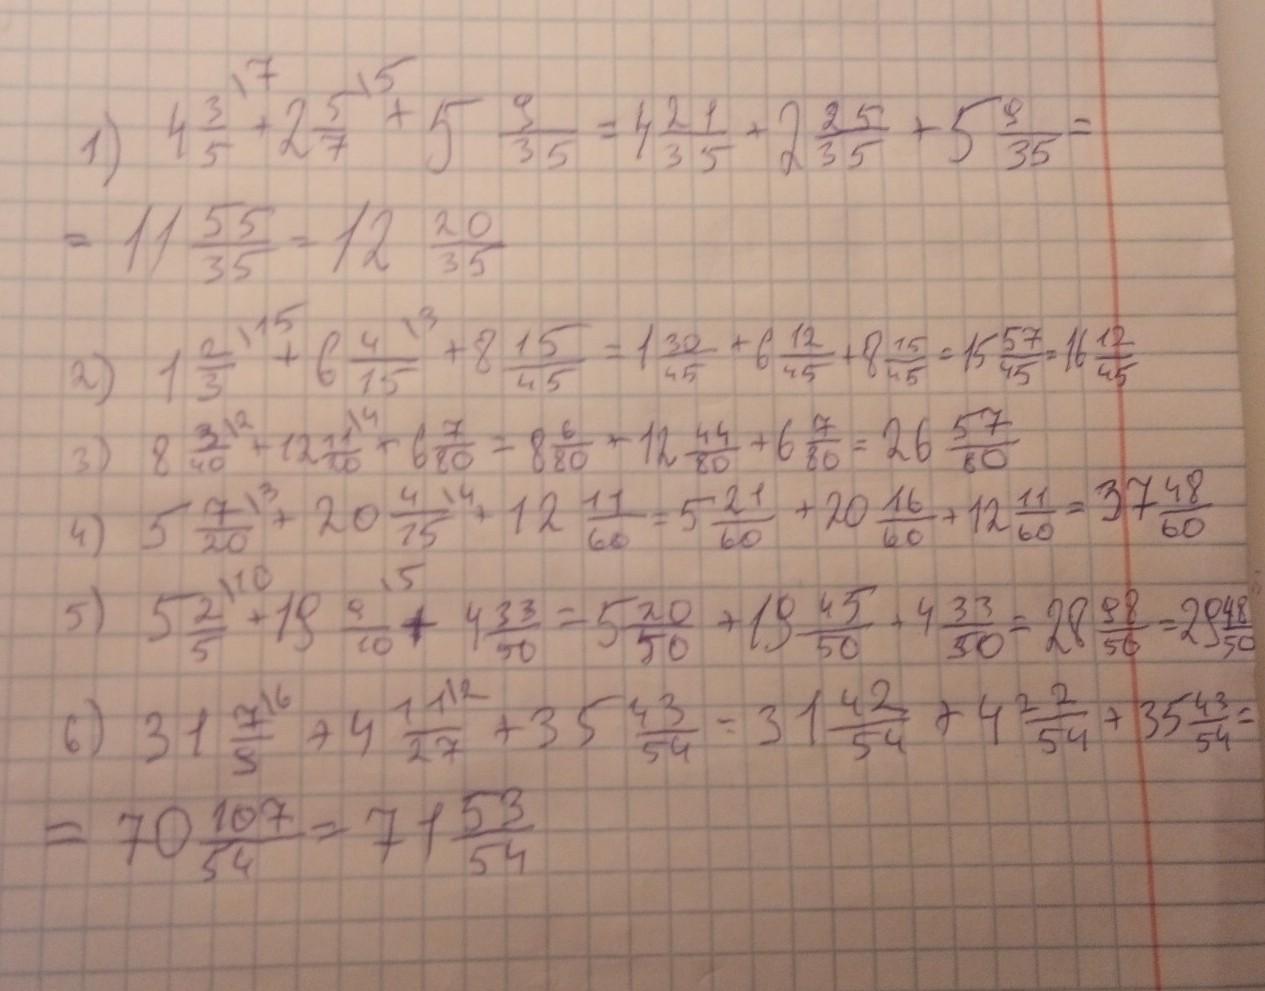 1) 4 3/5 \7 + 2 5/7 \5 + 5 9/35 = 4 21/35 + 2 25/35 + 5 9/35 =
= 11 55/35 = 12 20/35
2) 1 2/3 \15 + 6 4/15 \3 + 8 15/45 = 1 30/45 + 6 12/45 + 8 15/45 = 15 57/45 = 16 12/45
3) 8 3/40 \2 + 12 11/20 \4 + 6 7/80 = 8 6/80 + 12 44/80 + 6 7/80 = 26 57/80
4) 5 7/20 \3 + 20 4/15 \4 + 12 11/60 = 5 21/60 + 20 16/60 + 12 11/60 = 37 48/60
5) 5 2/5 \10 + 19 9/10 \5 + 4 33/50 = 5 20/50 + 19 45/50 + 4 33/50 = 28 98/50 = 29 48/50
6) 31 7/9 \6 + 4 11/27 \2 + 35 43/54 = 31 42/54 + 4 22/54 + 35 43/54 =
= 70 107/54 = 71 53/54